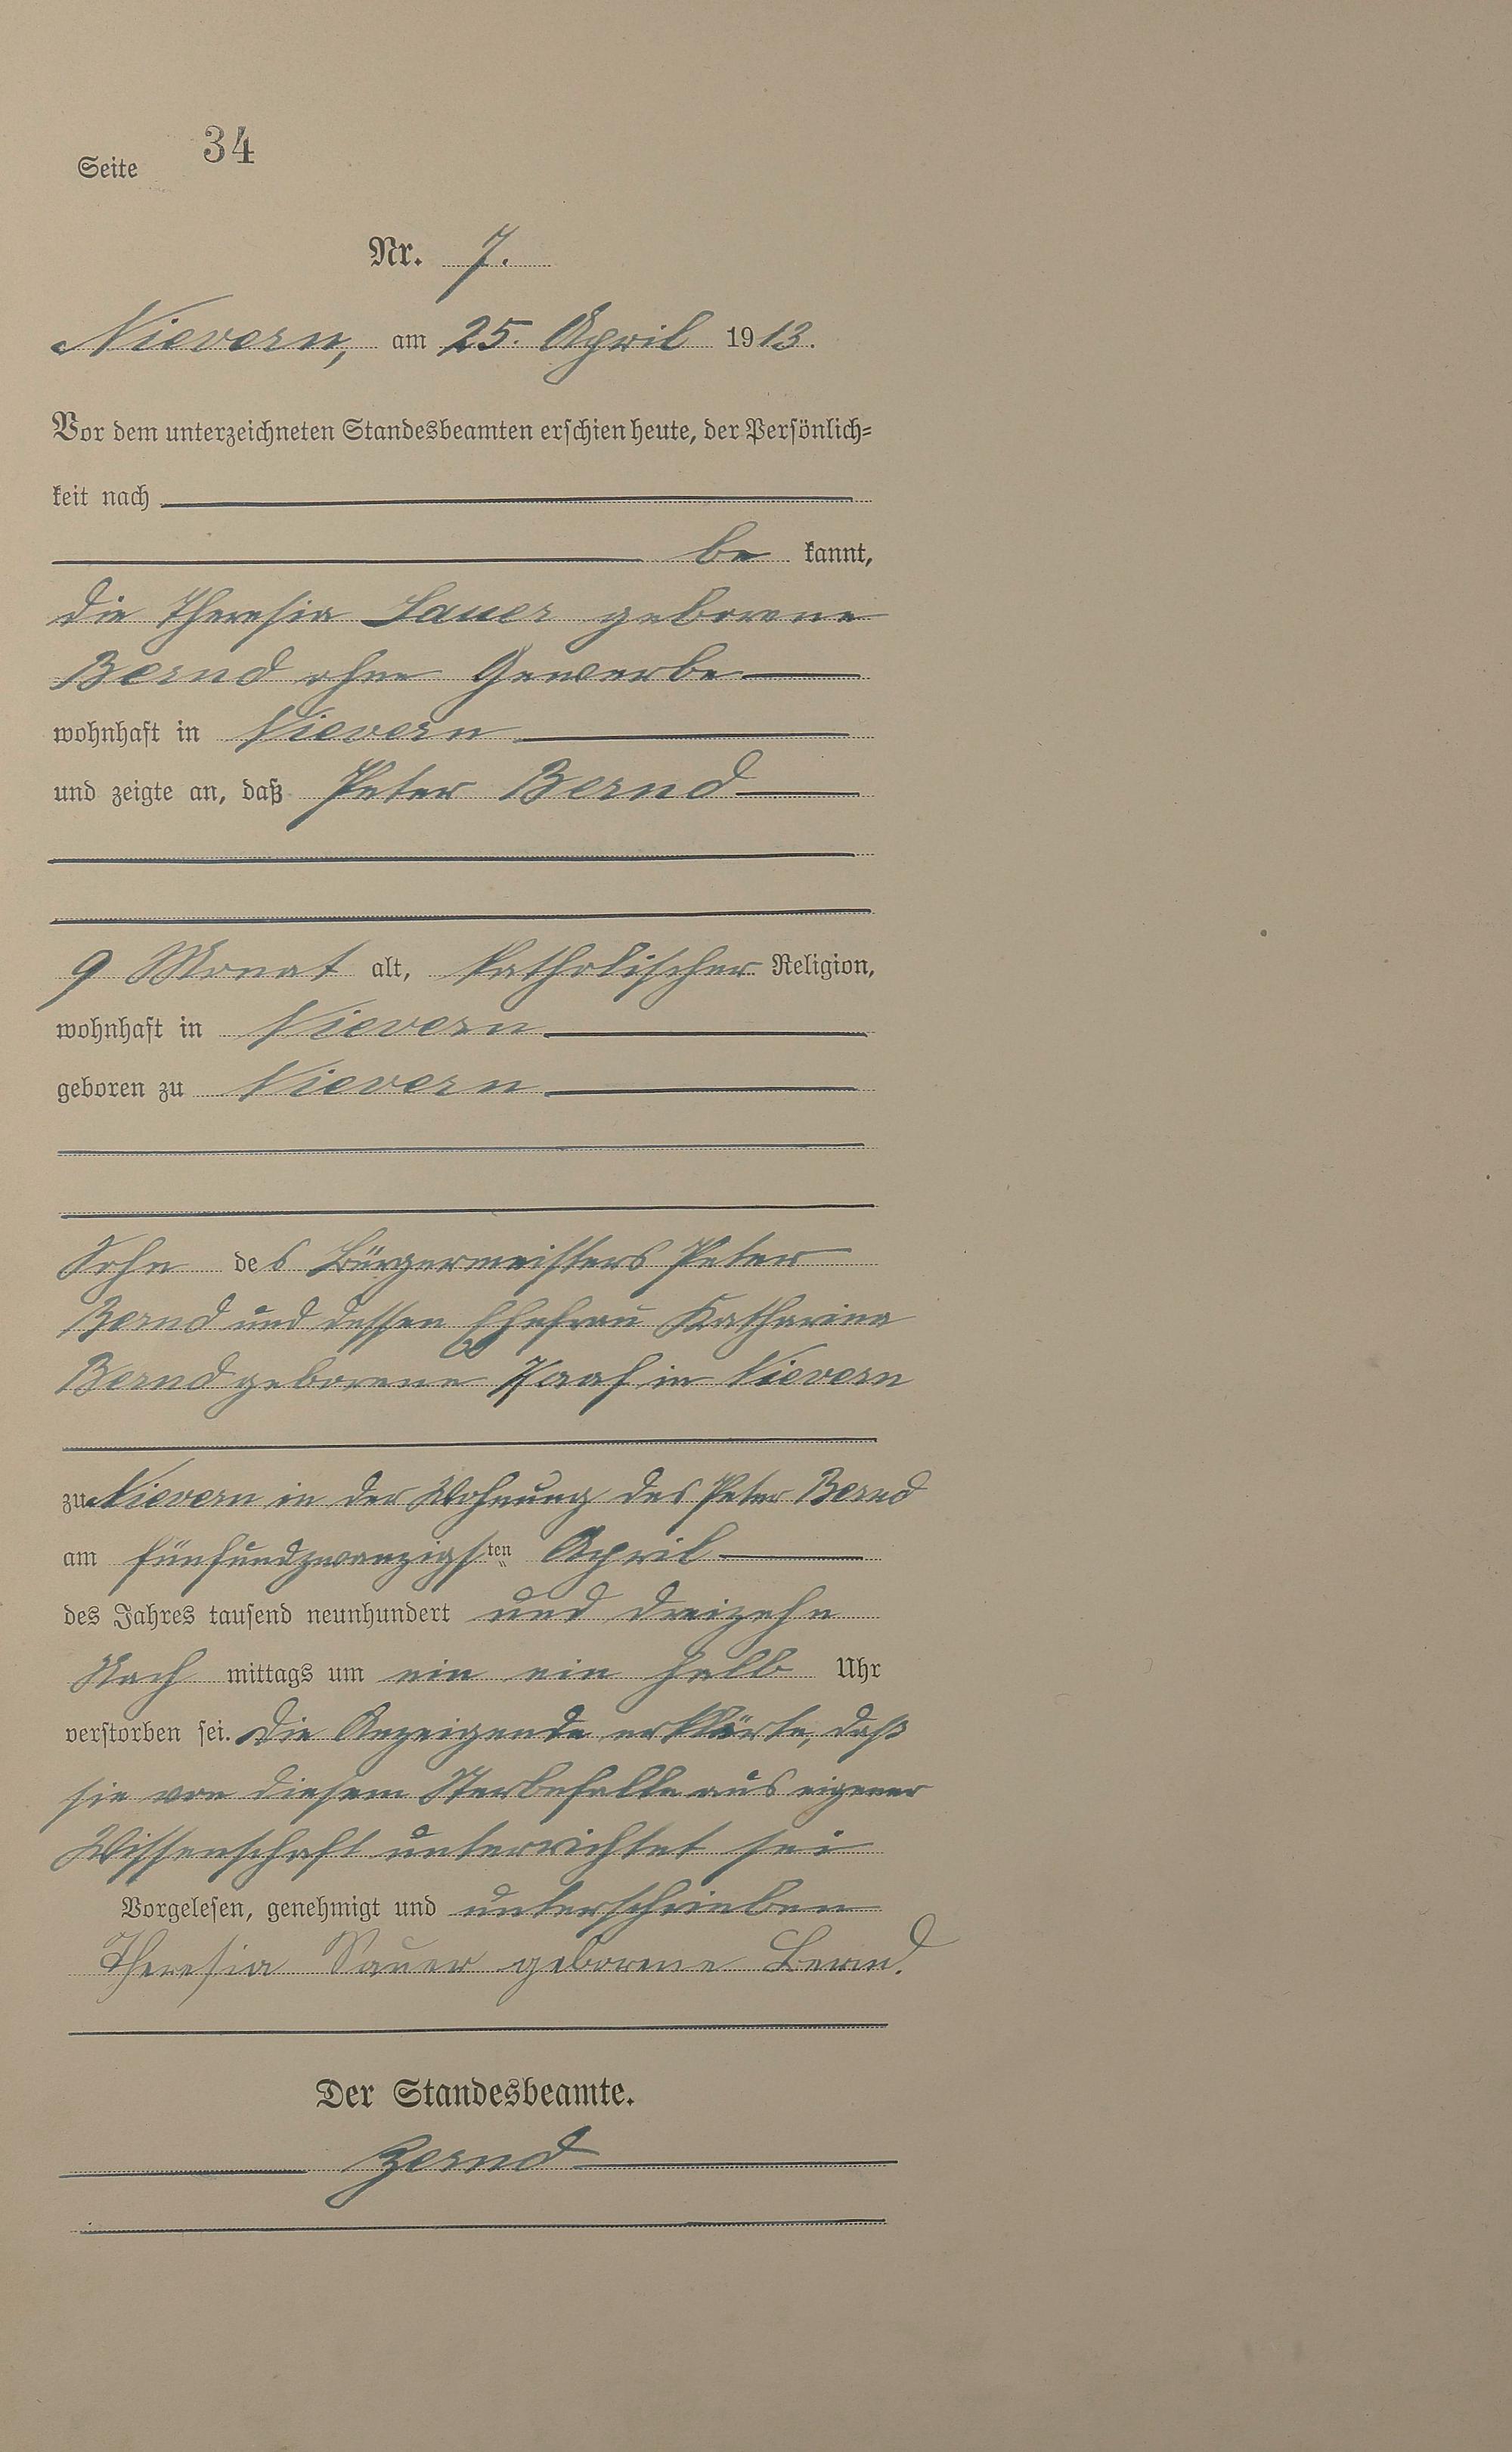 Seite 34
Nr. 7.
Nievern, am 25. April 1913.
Vor dem unterzeichneten Standesbeamten erschien heute, der Persönlich=
keit nach
be kannt,
die Theresia Sauer geborene
Bernd ohne Gewerbe
wohnhaft in Nievern
und zeigte an, daß Peter Bernd
9 Monat alt, katholischer Religion,
wohnhaft in Nievern
geboren zu Nievern
Sohn des Bürgermeisters Peter
Bernd und dessen Ehefrau Katharina
Bernd geborene in Nievern
zu Nievern in der Wohnung des Peter Bernd
am fünfundzwanzigsten April
des Jahres tausend neunhundert und dreizehn
Nach mittags um ein ein halb Uhr
verstorben sei. Die Anzeigende erklärte, daß
sie von diesem Sterbefalle aus eigener
Wissenschaft unterrichtet sei
Vorgelesen, genehmigt und unterschrieben
Theresia Sauer geborene Bernd.
Der Standesbeamte.
Bernd